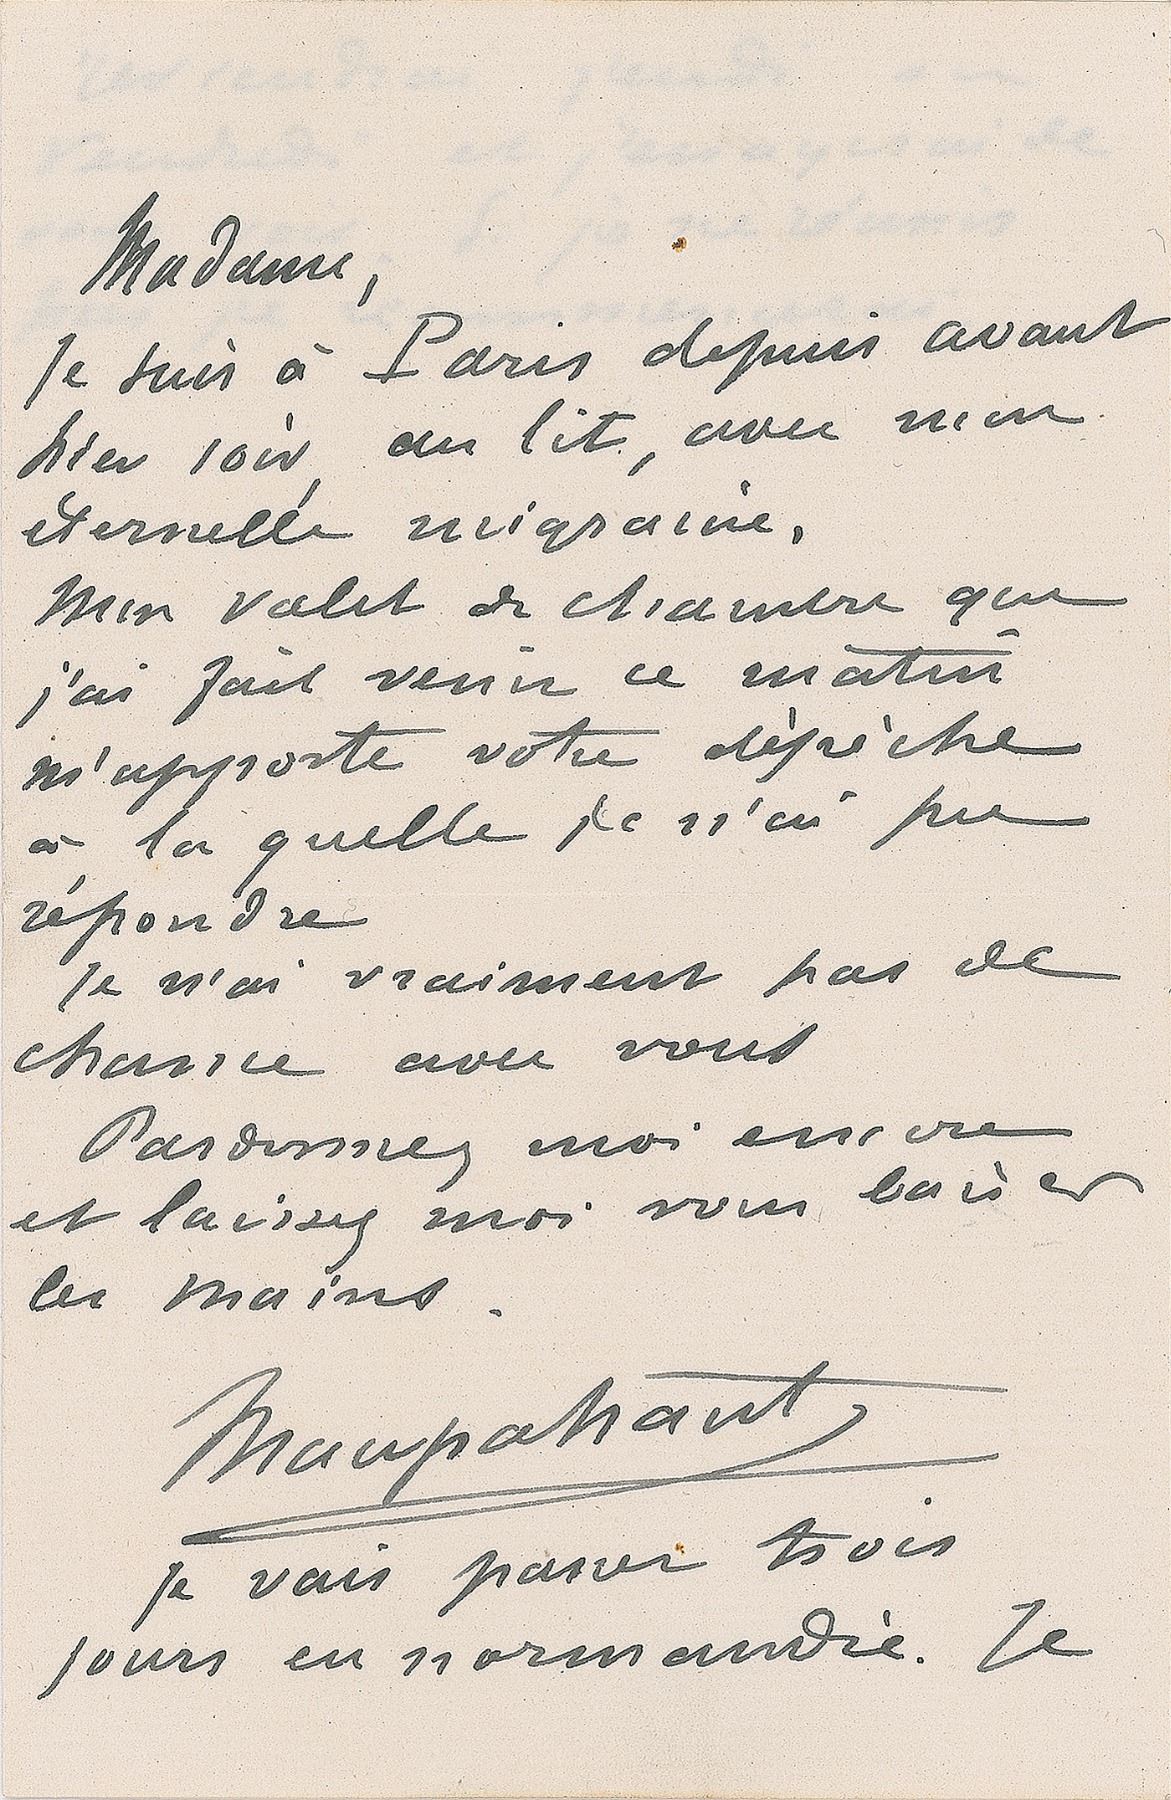 Madame,
Je suis à Paris depuis avant
hier soir, au lit, avec mon
éternelle migraine.
Mon valet de chambre que
j'ai fait venir ce matin
m'apporte votre dépêche
à la quelle je n'ai pu
répondre
Je n'ai vraiment pas de
chance avec vous
Pardonnez moi encore
et laissez moi vous baiser
les mains.
Maupassant
Je vais passer trois
jours en normandie. Je